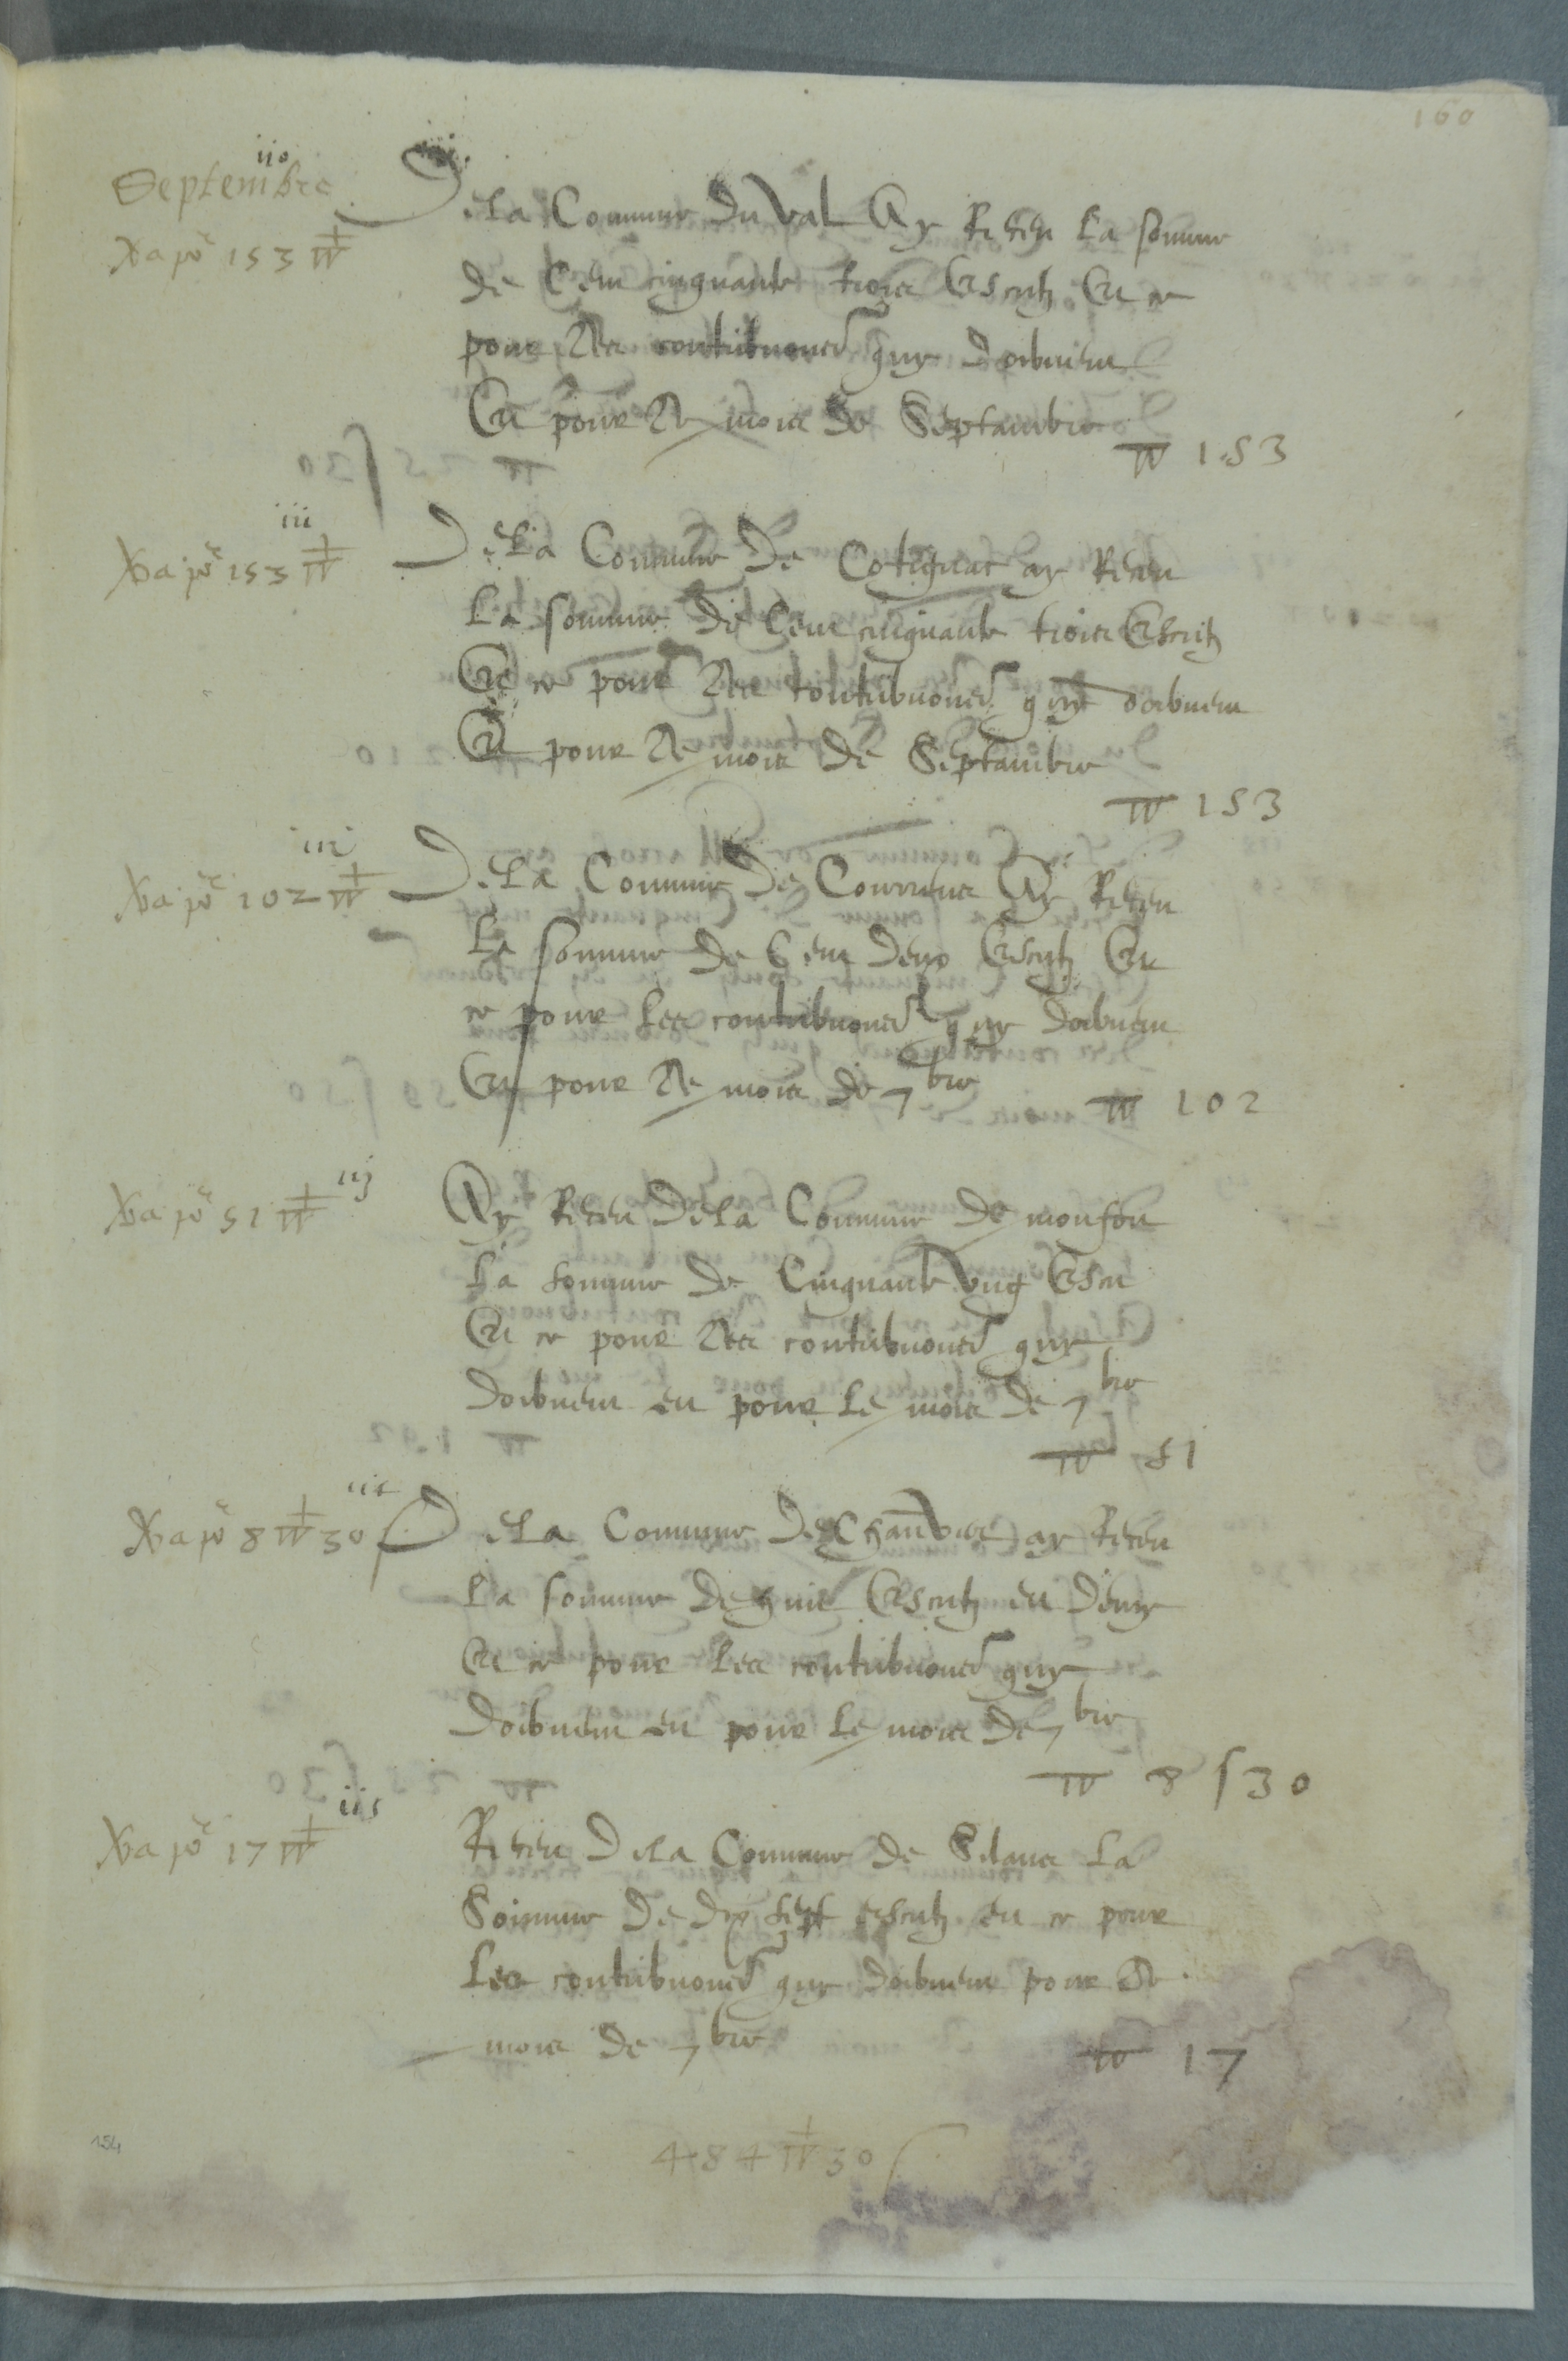 160
Septembre
De la Commune du Val Ay Receu la somme
de Cent cinquante trois Escutz Et ce
pour Les contribuons quy doibvent
Et pour Le mois de Septambre
153
iii
153
De La Commune De Cotignac ay Receu
La somme de Cent cinquante trois Escutz
Et ce pour Les contribuons quy doibvent
Et pour Le mois de Septambre
153
iii
102
De La Commune de Courrens Ay Receu
La somme de Cent deux Escutz Et
ce pour Les contribuons quy doibvent
Et pour Le mois de 7bre
102
iij
51
Ay Receu De la Commune de monfort
La somme de Cinquante Ung Escu
Et ce pour Les contribuons quy
doibvent en pour Le mois de 7bre
51
8 30
De La Commune De ay Receu
La somme de huit Escutz en demy
Et ce pour Les contribuons quy
doibvent en pour Le mois de 7bre
8 s 30
17
Receu De La Commune de Silans La
Somme de dix sept escutz en ce pour
Les contribuons quy doibvent pour Le
mois de 7bre
17
484 30 s
154